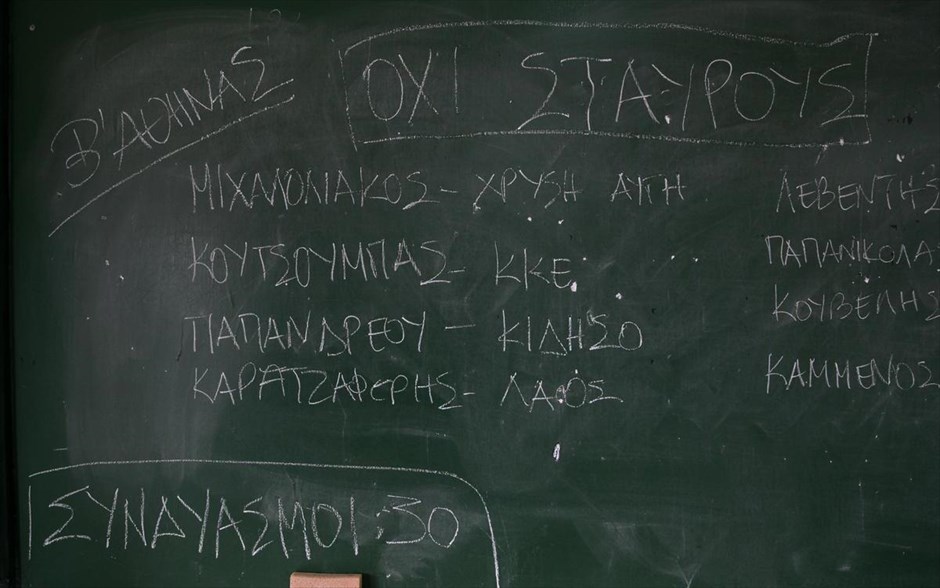 Β' ΑΘΗΝΑΣ
ΟΧΙ ΣΤΑΥΡΟΥΣ
ΜΙΧΑΛΟΛΙΑΚΟΣ - ΧΡΥΣΗ ΑΥΓΗ
ΚΟΥΤΣΟΥΜΠΑΣ - ΚΚΕ
ΠΑΠΑΝΔΡΕΟΥ - ΚΙΔΗΣΟ
ΚΑΡΑΤΖΑΦΕΡΗΣ - ΛΑΟΣ
ΛΕΒΕΝΤΗΣ
ΠΑΠΑΝΙΚΟΛΑ
ΚΟΥΒΕΛΗΣ
ΚΑΜΜΕΝΟΣ
ΣΥΝΔΥΑΣΜΟΙ: 30